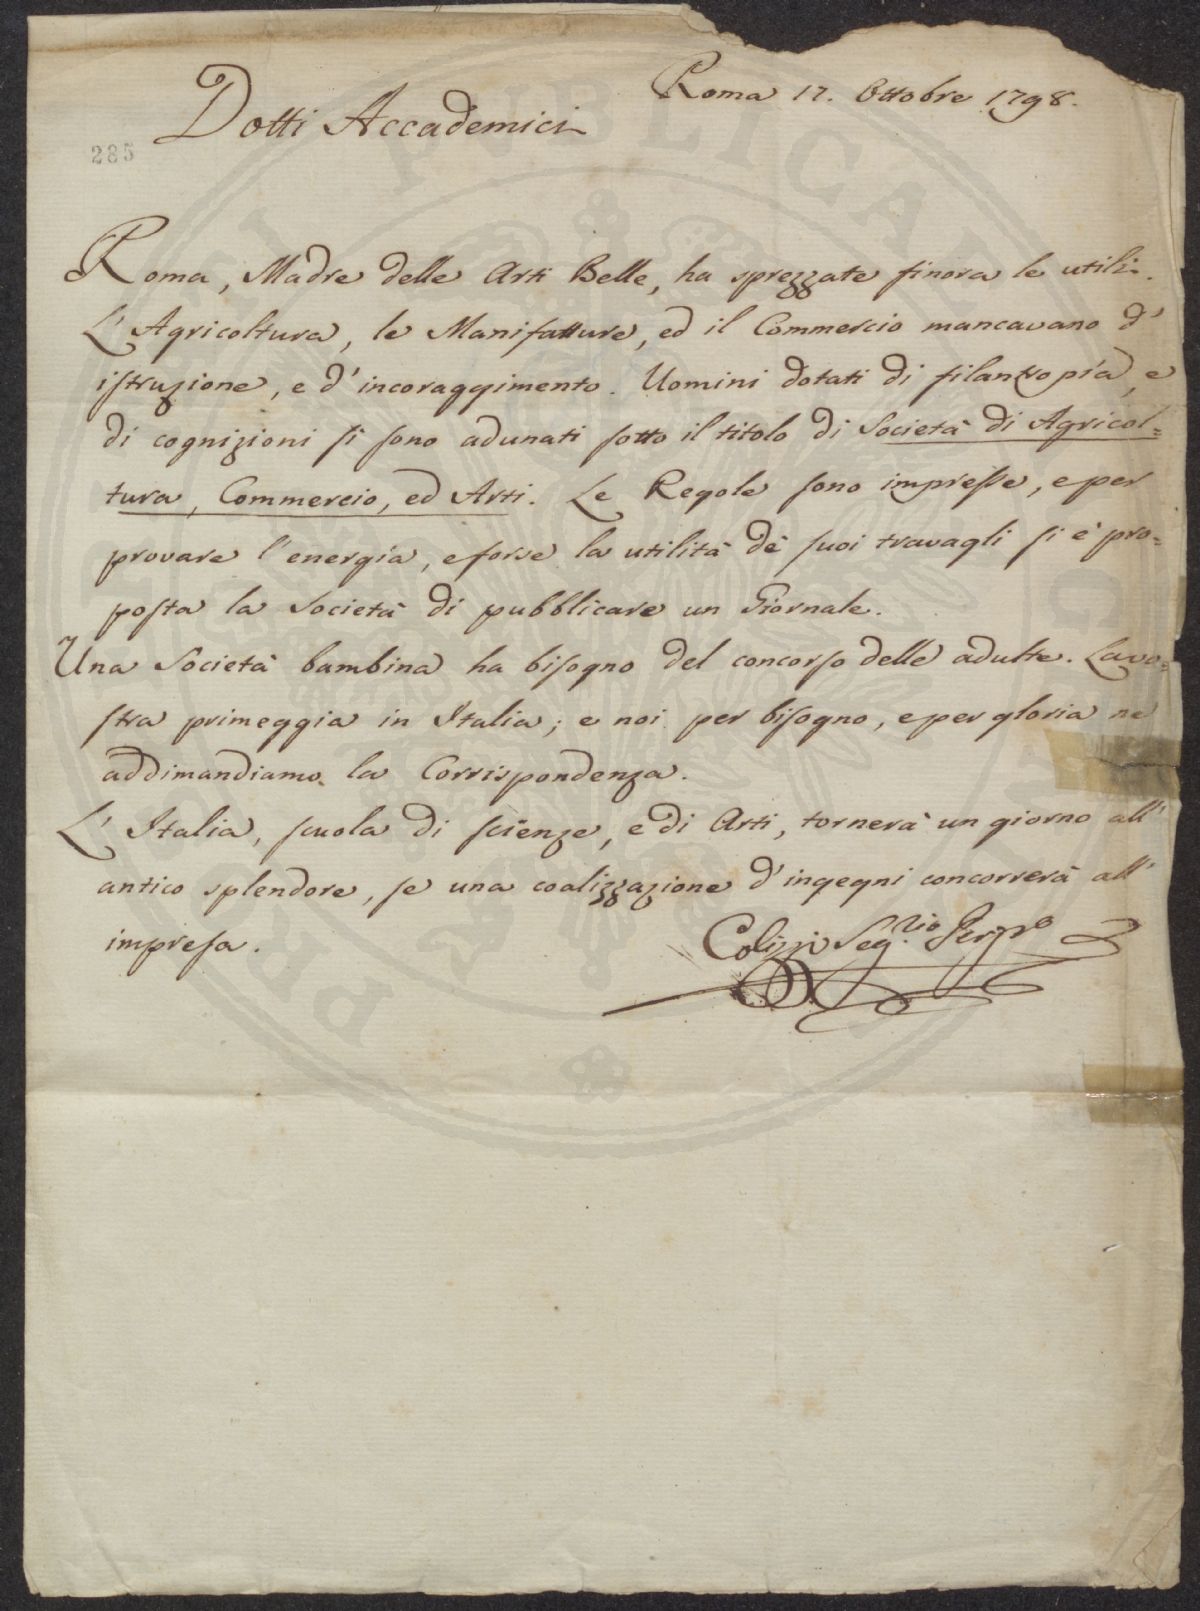 Roma 17. Ottobre 1798.
Dotti Accademici
285
Roma, Madre delle Arti Belle, ha sprezzate finora le utili.
L'Agricoltura, le Manifatture, ed il Commercio mancavano d'
istruzione, e d'incoraggimento. Uomini dotati di filantropía, e
di cognizioni si sono adunati sotto il titolo di Società di Agricol=
tura, Commercio, ed Arti. Le Regole sono impresse, e per
provare l'energía, e forse la utilità dè suoi travagli si è pro=
posta la Società di pubblicare un Giornale.
Una Società bambina ha bisogno del concorso delle adulte. La vo=
stra primeggia in Italia; e noi per bisogno, e per gloria ne
addimandiamo la Corrispondenza.
L'Italia, scuola di scienze, e di Arti, tornerà un giorno all'
antico splendore, se una coalizzazione d'ingegni concorrerà all'
impresa.
Colizzi Seg.rio Perp.o